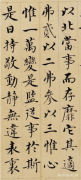 以北當事而存靡它其適
弗貳以二弗參以三惟心
惟一萬變是監從事於斯
是曰持敬動靜無違表裏